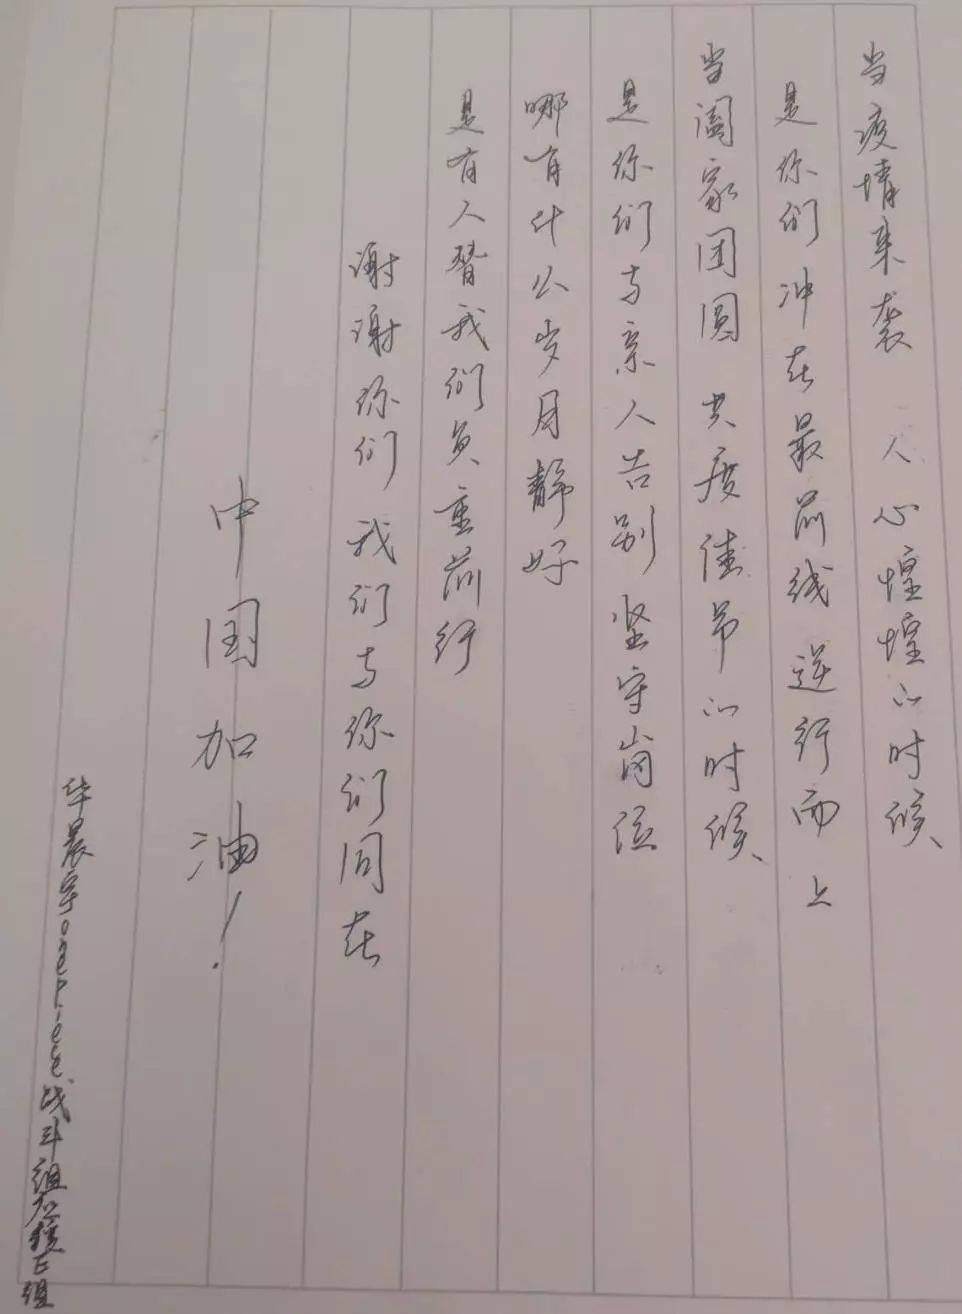 当疫情来袭 人心惶惶的时候
是你们冲在最前线逆行而上
当阖家团圆 共度佳节的时候
是你们与亲人告别坚守岗位
哪有什么岁月静好
是有人替我们负重前行
谢谢你们 我们与你们同在
中国加油!
华晨宇onepiece战斗组 组